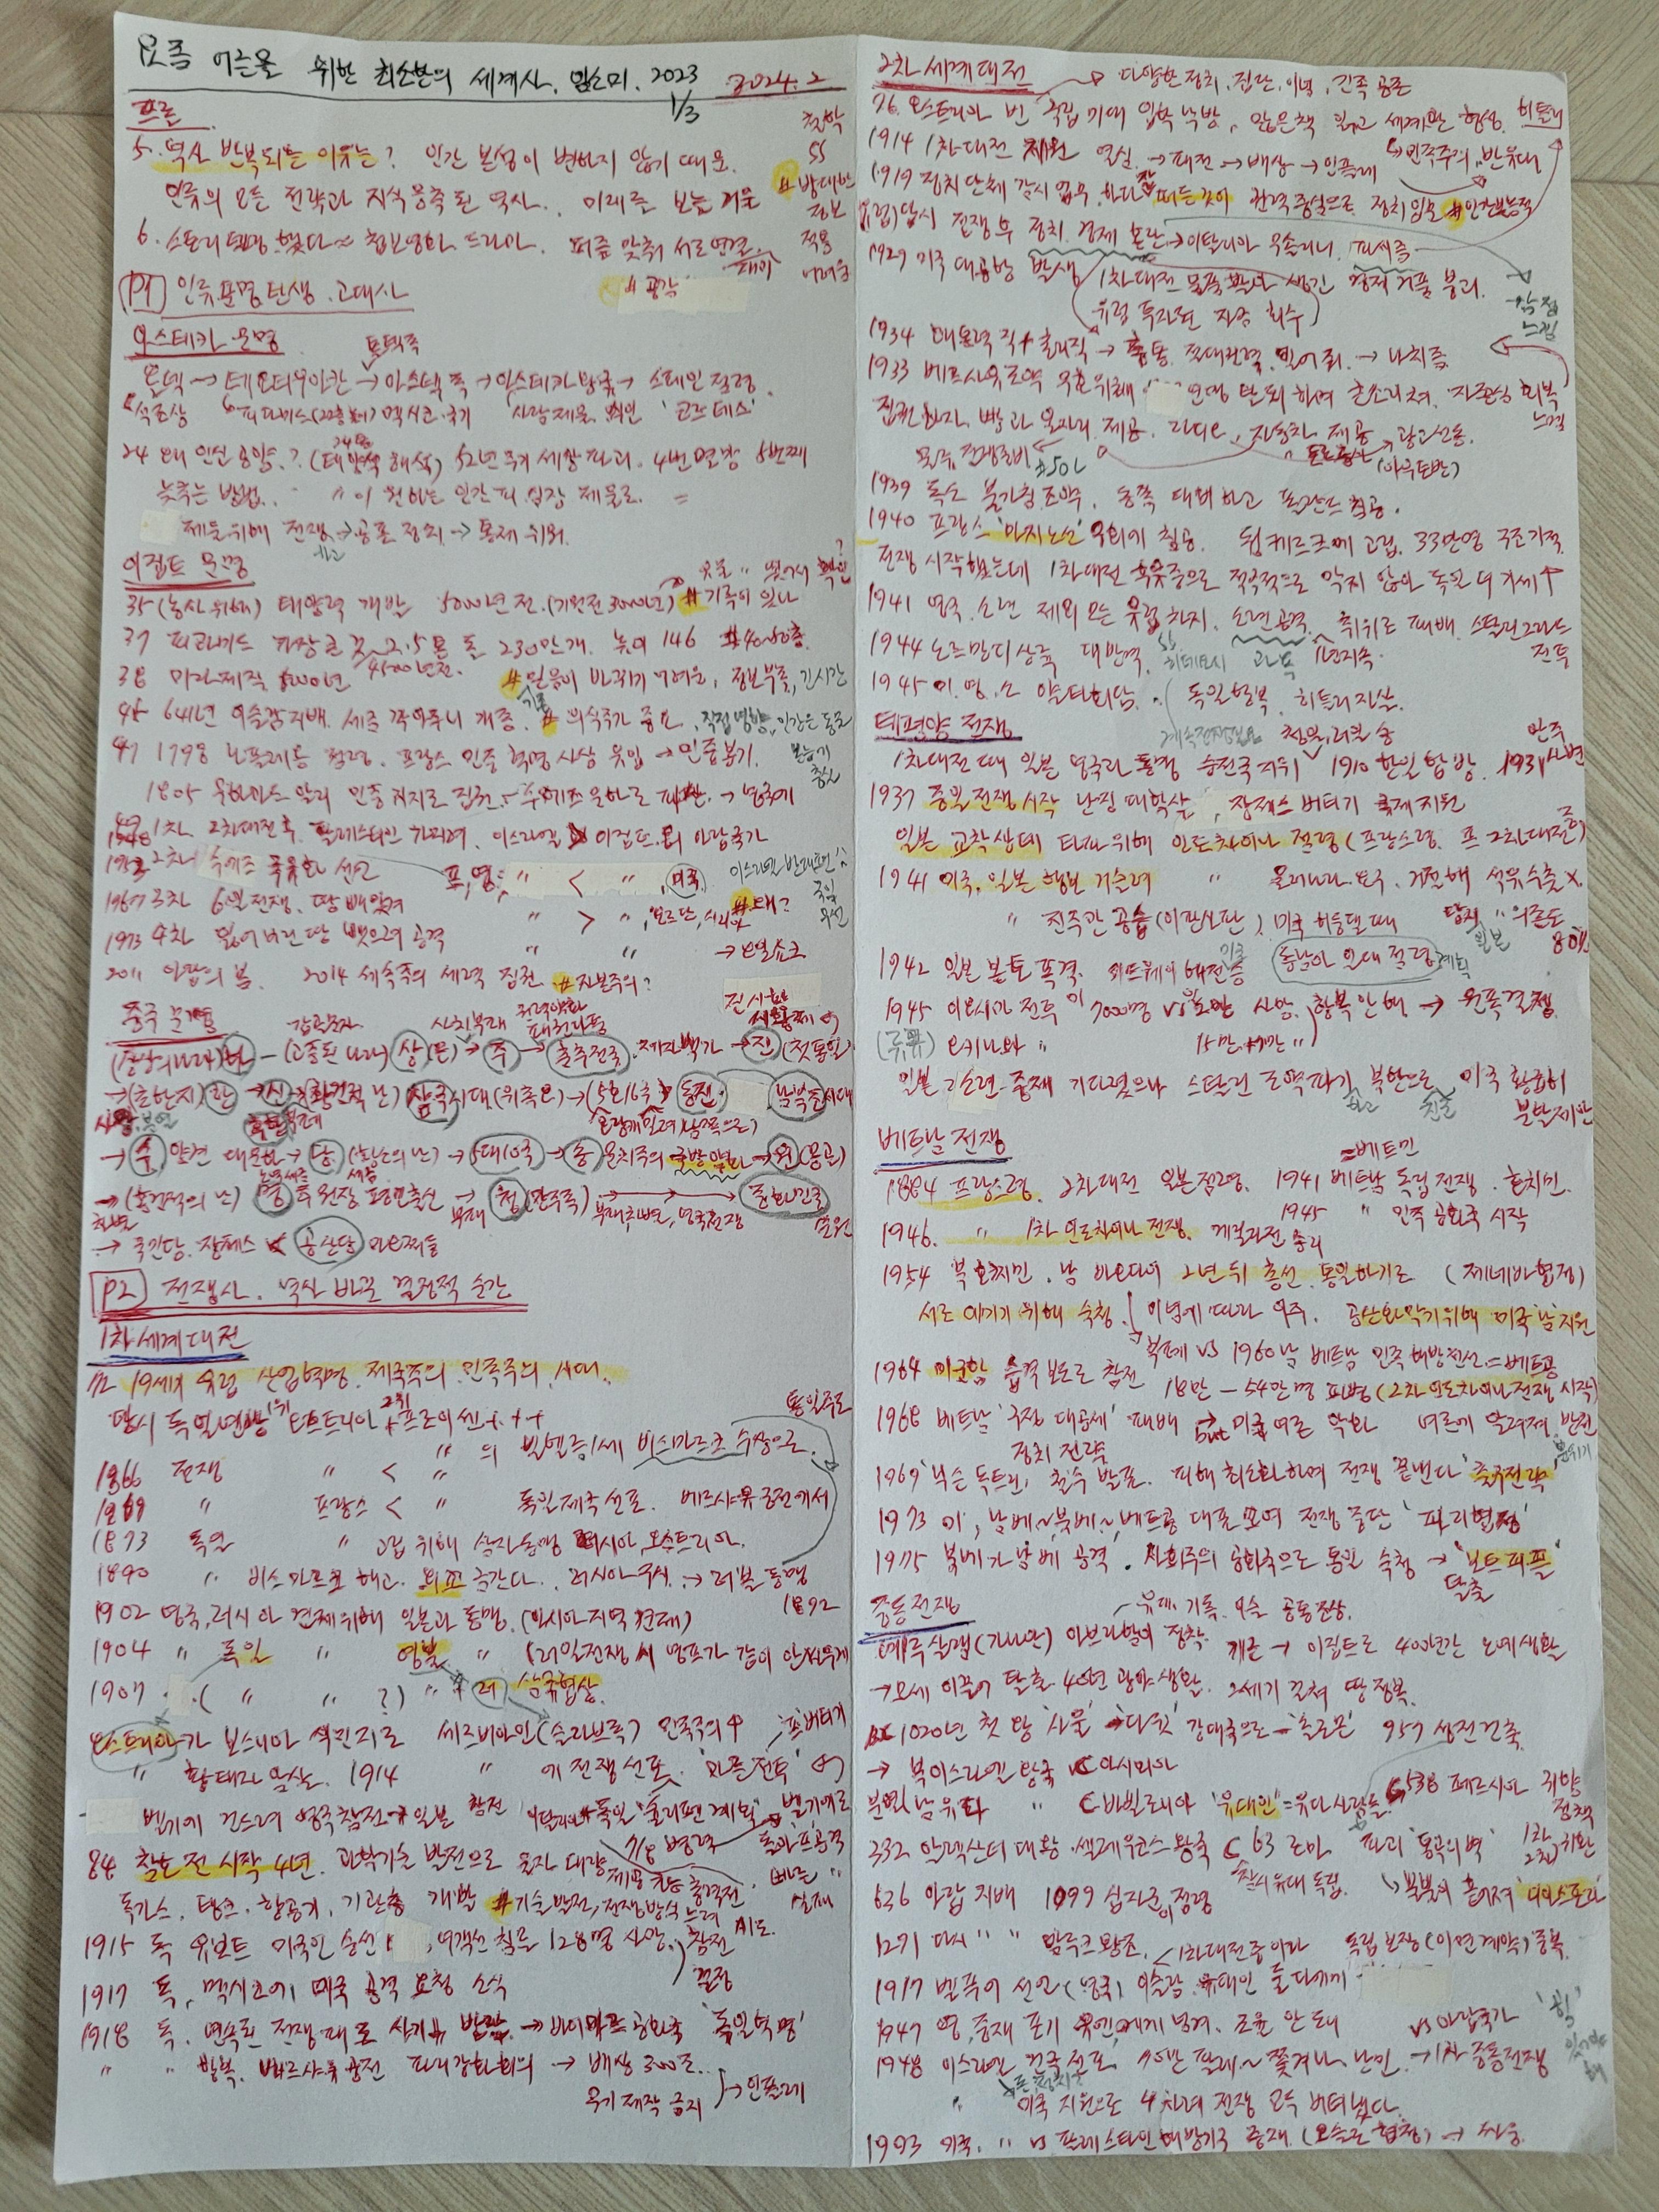 요즘 어른을 위한 최소한의 세계사. 임소미. 2023
1/3 2024.2
프롤
5. 역사 반복되는 이유는? 인간 본성이 변하지 않기 때문.
인류의 모든 전략과 지식 응축된 역사. 미래를 보는 거울
# 방대한 정보 적용 어려움
6. 스토리텔링 했다~ 첩보영화 드라마. 퍼즐 맞춰 서로 연결. 재미
# 공감
P1 인류문명 탄생. 고대사
아스테카 문명
올멕 → 테오티우아칸 → 아스텍족 → 아스테카 왕국 → 스페인 점령.
석조상 피라미드 멕시코 국기 사람제물 '코르테스'
24 왜 인신공양? (태양석 해석) 52년 주기 세상 파괴. 4번 멸망 5번째
늦추는 방법. " 이 원하는 인간 피 심장 제물로.
제물 위해 전쟁 → 공포정치 → 통제 위워
이집트 문명
35 (농사 위해) 태양력 개발 5000년 전. (기원전 3000년) # 기록이 있나
37 피라미드 가장 큰 것 2.5톤 돌 230만개. 높이 146 #40~50층.
4500년전.
38 미라 제작 # 믿음이 바뀌기 어려움, 정보부족, 긴시간
45 641년 이슬람 지배. 세금 깎아주니 개종. # 의식주가 중요. 직접 영향, 인간은 동물 본능기 충실
47 1798 나폴레옹 점령. 프랑스 민중 혁명 사상 유입 → 민중봉기.
1805 무함마드 알리 민중 지지로 집권. 수에즈 운하로 파산. → 영국에
1948 1차 2차대전 후. 팔레스타인 가려며, 이스라엘 이집트 외 아랍국가
2차 수에즈 국유화 선언 프, 영: " < ", 미국.
1967 3차 6일전쟁. 땅 빼앗겨 " > ", 요르단, 시리아 #왜?
1973 4차 잃어버린 땅 뺏으려 공격 " " → 오일쇼크
2011 아랍의 봄. 2014 세속주의 세력 집권 # 자본주의?
중국 문명
(상상의 나라) 하 - (고증된 나라) 상(은) → 주 → 춘추전국. 제자백가 → 진 (첫통일)
→ (초한지) 한 → 신 → (황건적 난) 삼국시대 (위촉오) → (5호16국 동진 남북조시대
오랑캐 밀려 (남쪽으로)
→ 수. 양견 대운하 → 당 (황소의 난) → 5대10국 → 송 문치주의 국방 약화 → 원 (몽골)
→ (홍건적의 난) 명 주원장 평민출신 → 청 (만주족) → 중화민국
→ 국민당. 장제스 VS 공산당 마오쩌둥
P2 전쟁사. 역사 바꾼 결정적 순간
1차 세계대전
19세기 유럽 산업혁명. 제국주의. 민족주의. 시대.
당시 독일연방 1위 오스트리아 + 2위 프로이센 + + +
" 의 빌헬름1세 비스마르크 수상으로. 통일주도
1866 전쟁 " < "
1869 " 프랑스 < " 독일제국 선포. 베르사유궁전에서
1873 독일 " 고립 위해 삼자동맹 러시아, 오스트리아.
1890 " 비스마르크 해고. 외교 금간다. 러시아 무시. → 러불동맹
1892
1902 영국, 러시아 견제위해 일본과 동맹. (아시아지역 견제)
1904 " 독일 " 영불 " (러일전쟁 시 영프가 같이 안싸우게
1907 ( " " ?) " + 러 삼국협상.
오스트리아가 보스니아 식민지로 세르비아인 (슬라브족) 민족주의↑
" 황태자 암살. 1914 " 에 전쟁선포. '마른전투' '프' 버티기
벨기에 건드려 영국참전 → 일본 참전 독일 '슐리펜 계획' 벨기에로
7/8 병력 독이 프 공격
84 참호전 시작 4년. 과학기술 발전으로 물자 대량 제공 가능 총력전.
독가스, 탱크, 항공기, 기관총 개발 # 기술발전, 전쟁방식 느려
1915 독 유보트 미국인 승선, 여객선 침몰 128명 사망. 참전 결정
1917 독, 멕시코에 미국 공격 요청 소식
1918 독. 연속된 전쟁 패로 사기 → 바이마르 공화국 '독일혁명'
" " 항복. 베르사유궁전 파리강화회의 → 배상 300조..
무기 제작 금지 → 인플레
2차 세계대전
다양한 정치, 집단, 이념, 민족 공존
76. 오스트리아 빈 국립미대 입학 낙방. 많은책 읽고 세계관 형성. 히틀러
민족주의, 반유대
1914 1차대전 지원 열심. → 패전 → 배상 → 인플레
1919 정치단체 감시 업무 하다 빠져든 것이 정치입문 # 인간본능적
유럽) 당시 전쟁 후 정치. 경제 혼란 → 이탈리아 무솔리니. 파시즘
1929 미국 대공황 발생 1차대전 물품팔다 생긴 경제 거품 붕괴.
유럽 투자된 자금 회수
1934 대통령직 + 총리직 → 총통. 절대권력. 밀어줘. → 나치즘
1933 베르사유조약 연맹 탈퇴하며 큰소리쳐. 자존심 회복 느낌
집권하자 빵과 일자리 제공. 라디오, 자동차 제공 광고선동.
(아우토반)
1939 독소 불가침조약. 동쪽 대비하고 폴란드 침공.
1940 프랑스 '마지노선' 우회해 침공. 됭케르크에 고립. 33만명 구조 기적
전쟁 시작했는데 1차대전 후유증으로 적극적으로 막지 않아 독일 더 거세↑
1941 영국. 소련 제외 모든 유럽 차지. 소련공격. 추위로 패배. 스탈린그라드 전투
1944 노르망디상륙 대반격.
1945 미.영.소 얄타회담. 독일 항복. 히틀러 자살.
태평양 전쟁
1차대전 때 일본 영국과 동맹 승전국 지위 청일, 러일 승 1910 한일합방. 1931 만주사변
1937 중일전쟁 시작 난징대학살 장제스 버티기 국제지원
일본 교착상태 타파 위해 인도차이나 점령 (프랑스령. 프 2차대전중)
1941 미국, 일본 " 물러나라 요구. 거절해 석유수출 X.
" 진주만 공습 (이판사판) 미국 히틀댈 때 당시 " 의존도 80%
1942 일본 본토 폭격. 미드웨이 해전 승 동남아 일대 점령 계획
1945 이오지마 전투 미 7000명 VS 일 2만 사망. 항복 안해 → 원폭결정.
(류큐) 오키나와 " 15만. "
일본 소련 중재 기다렸으나 스탈린 조약파기하고 북한으로 진출 미국 황급히 분할제안
베트남 전쟁
=베트민
1884 프랑스령. 2차대전 일본점령. 1941 베트남 독립전쟁. 호치민.
1945 " 민족 공화국 시작
1946. " 1차 인도차이나 전쟁. 게릴라전 승리
1954 북 호치민. 남 바오다이 2년 뒤 총선. 통일하기로 (제네바협정)
서로 이기기 위해 숙청. 이념에 따라 이주. 공산화 막기위해 미국 '남' 지원
북베 VS 1960 남 베트남 민족해방전선 = 베트콩
1964 미군함 습격 보도로 참전 18만 - 54만명 파병 (2차 인도차이나 전쟁 시작)
1968 베트남 '구정 대공세' 패배 but 미국 여론 악화 여론에 알려져 반전 분위기
정치 전략
1969 '닉슨 독트린' 철수 발표. 피해 최소화하며 전쟁 끝낸다 '출구전략'
1973 미, 남베~북베~, 베트콩 대표 모여 전쟁 중단 '파리협정'
1975 북베가 남베 공격. 사회주의 공화국으로 통일 숙청 → '보트피플' 탈출
중동전쟁
유대. 기독. 이슬 공통조상.
예루살렘 (가나안) 아브라함이 정착. 기근 → 이집트로 400년간 노예생활
→ 모세 이끌어 탈출 40년 광야생활. 2세기 걸쳐 땅정복.
BC 1020년 첫 왕 '사울' → '다윗' 강대국으로 - '솔로몬' 957 성전건축.
→ 북이스라엘 왕국 C 아시리아
분열 남유다 " C 바빌로니아 '유대인' = 유다 사람들 C 538 페르시아 귀향정책
332 알렉산더 대왕. 셀레우코스 왕국 C 63 로마 파괴 '통곡의 벽' 1차 2차 귀환
잠시 유대 독립. 뿔뿔이 흩어져 '디아스포라'
636 아랍 지배 1099 십자군이 점령
1291 다시 " " 맘루크왕조. 1차대전 중이라 독립 보장 (이면계약) 중복.
1917 벨푸어 선언 (영국) 이슬람. 유대인 둘다에게
1947 영, 중재 포기 유엔에게 넘겨. 조율 안돼
1948 이스라엘 건국선포, 70만 팔레~ 쫓겨나 난민. → 1차 중동전쟁 VS 아랍국가 '힘' 있어야 해
" 미국 지원으로 4차례 전쟁 모두 버텨냈다.
1993 미국. " VS 팔레스타인 해방기구 중재. (오슬로 협정) → 싸움.